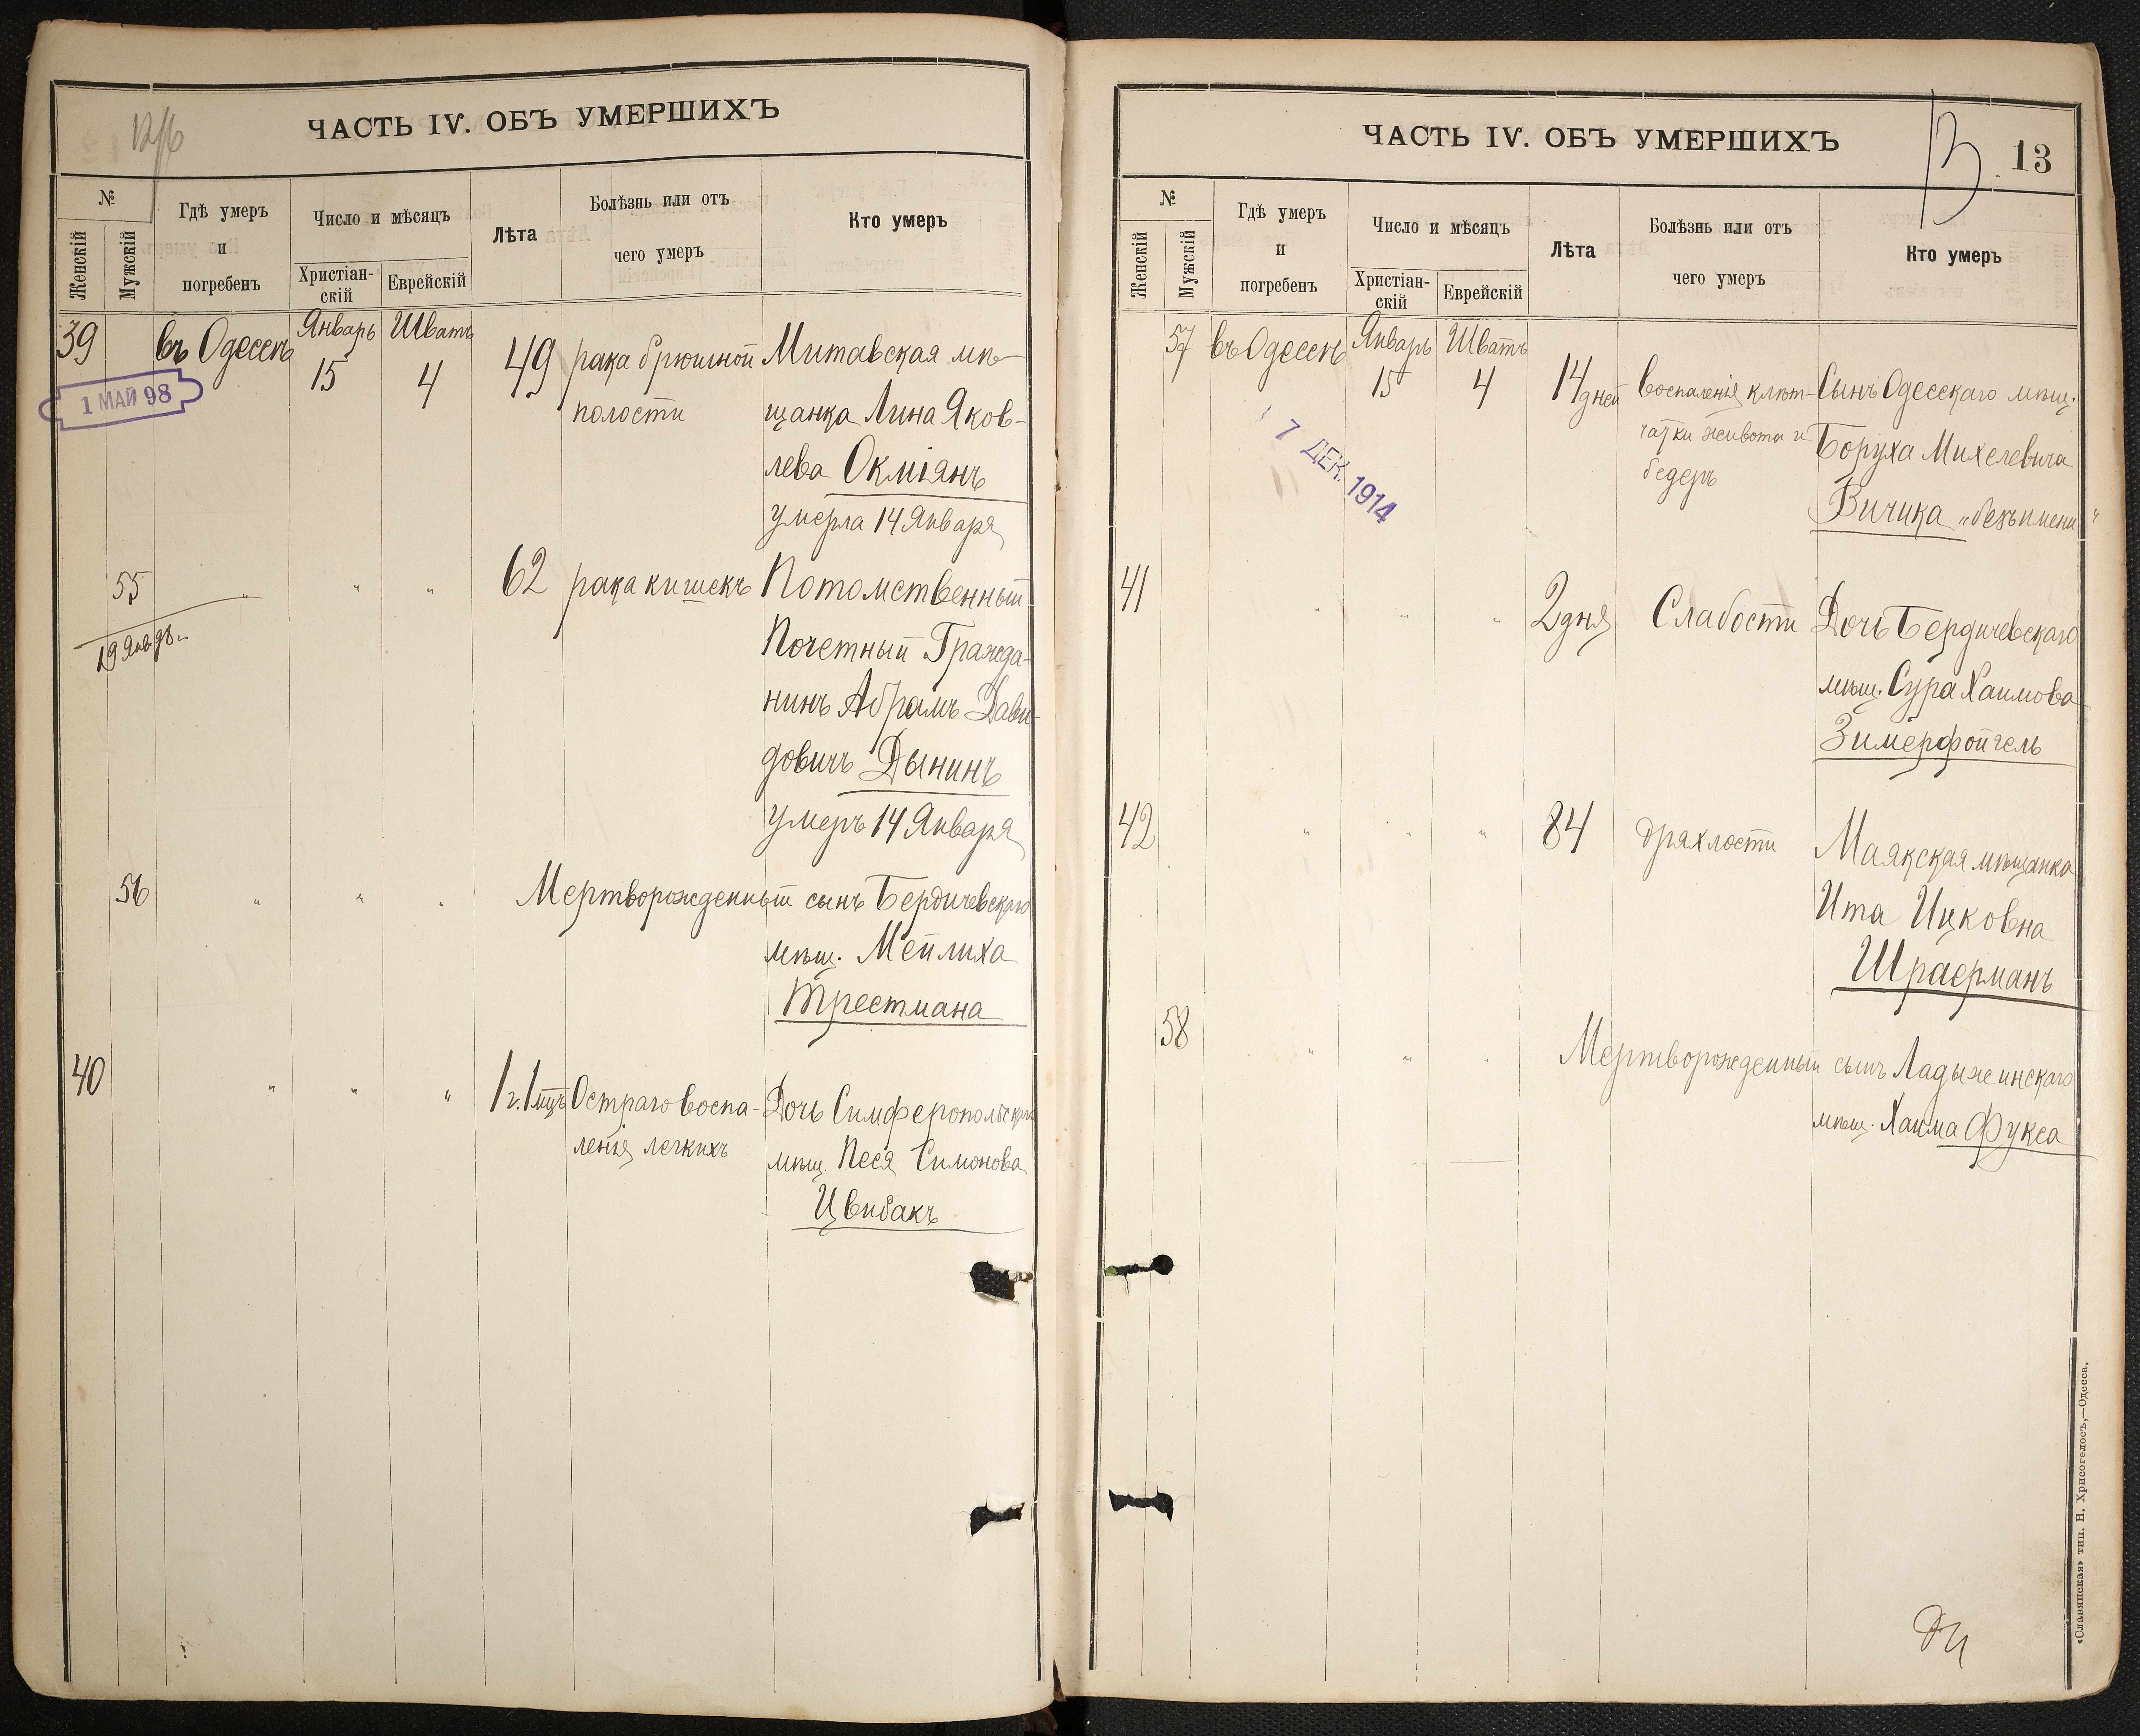 ЧАСТЬ IV. ОБЪ УМЕРШИХЪ
№
Женскій
Мужскій
Гдѣ умеръ
и
погребенъ
Число и мѣсяцъ
Христіан-
скій
Еврейскій
Лѣта
Болѣзнь или отъ
чего умеръ
Кто умеръ
39 въ Одессѣ Январь 15 Шватъ 4 49 рака брюшной Митавская мѣ-
1 МАЙ 98
полости щанка Лина Яков-
лева Окміянъ
умерла 14 Января
55 " " " 62 рака кишекъ Потомственный
Почетный Гражда-
нинъ Абрамъ Дави-
довичъ Дынинъ
умеръ 14 Января
56 " " " Мертворожденный сынъ Бердичевскаго
мѣщ. Мейлиха
Трестмана
40 " " " 1 г. 1 мцъ Остраго воспа- Дочь Симферопольскаго
ленія легкихъ мѣщ. Песя Симонова
Цвибакъ
ЧАСТЬ IV. ОБЪ УМЕРШИХЪ
13
13
№
Женскій
Мужскій
Гдѣ умеръ
и
погребенъ
Число и мѣсяцъ
Христіан-
скій
Еврейскій
Лѣта
Болѣзнь или отъ
чего умеръ
Кто умеръ
57 въ Одессѣ Январь 15 Шватъ 4 14 дней воспаленія клѣт- Сынъ Одесскаго мѣщ.
чатки живота и Боруха Михелевича
бедеръ Вичика „безъ имени“
7 ДЕК. 1914
41 " " " 2 дня Слабости Дочь Бердичевскаго
мѣщ. Сура Хаимова
Зимерфойгель
42 " " " 84 дряхлости Маякская мѣщанка
Ита Ицковна
Шраерманъ
58 " " " Мертворожденный сынъ Ладыжинскаго
мѣщ. Хаима Фукса
«Славянская» тип. Н. Хрисогелосъ,—Одесса.